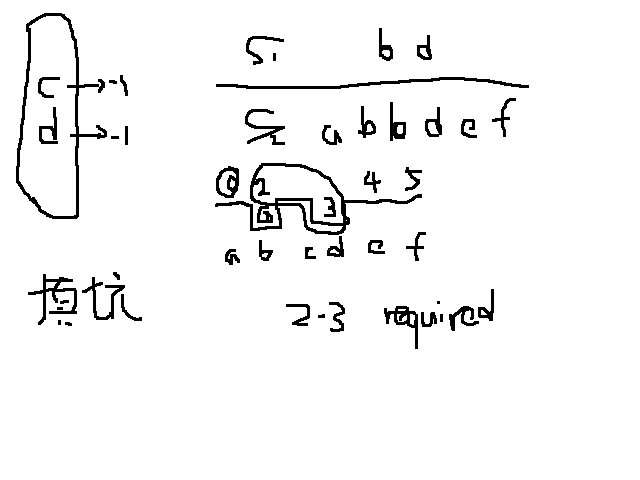 c → -1
d → -1
S1 b d
S2 a b b d e f
2 4 5
3
a b c d e f
填坑
2-3 required